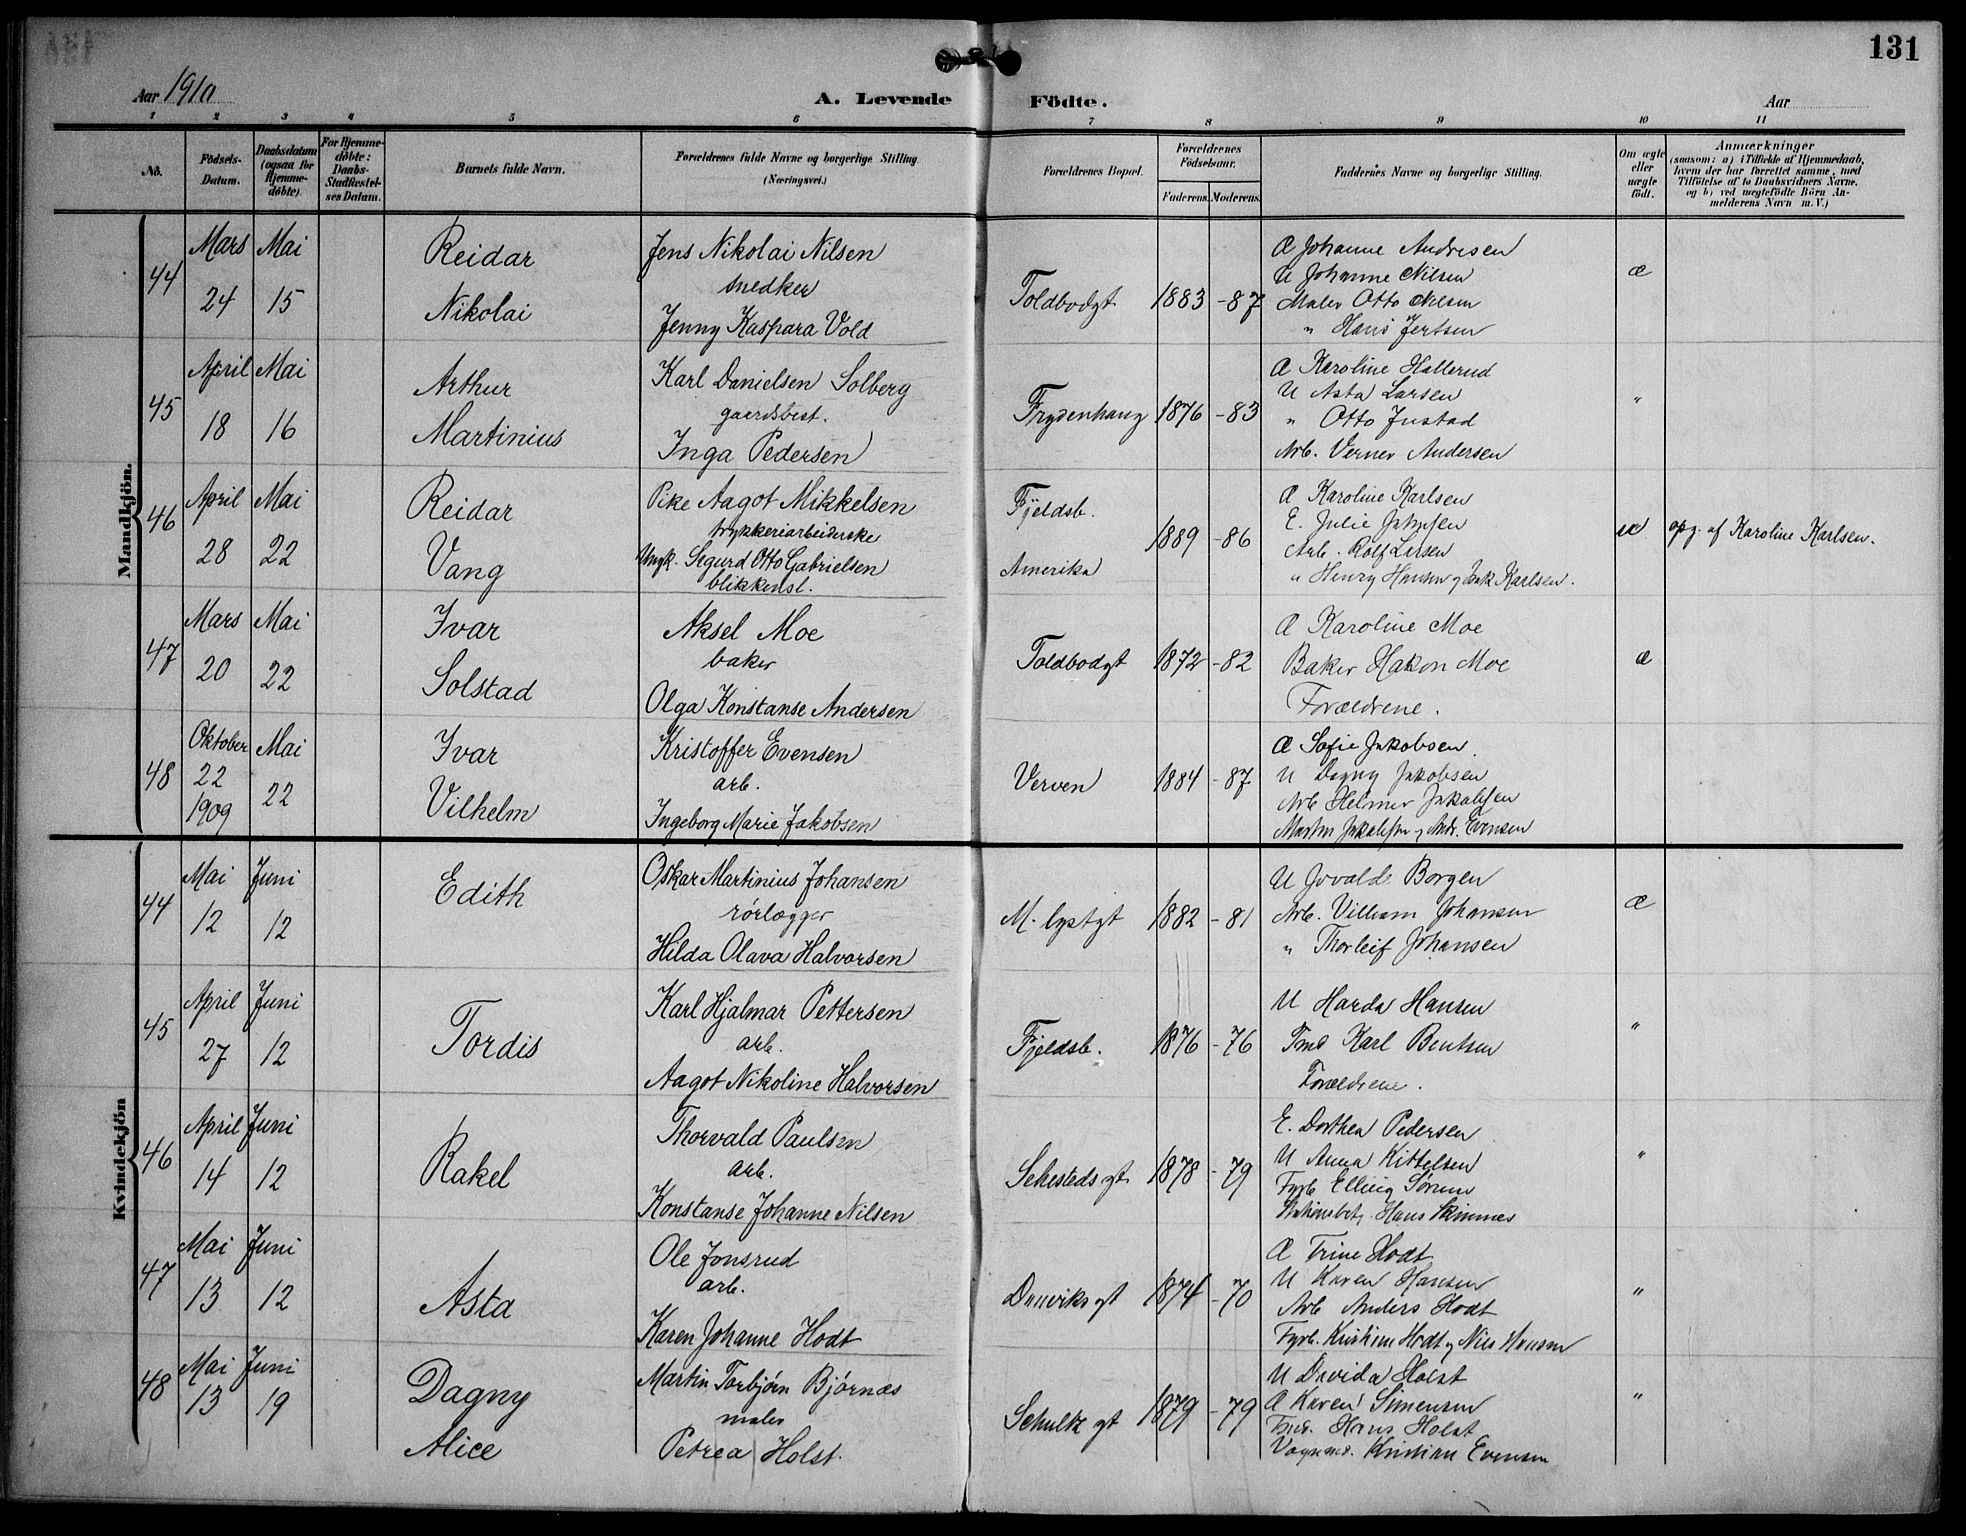 131
Aar 1910
A. Levende Födte.
Aar
1 2 3 4 5 6 7 8 9 10 11
No. Födsels-Datum. Daabsdatum (ogsaa for Hjemme-döbte). For Hjemme-döbte: Daabs-Stadfæstel-ses Datum. Barnets fulde Navn. Forældrenes fulde Navne og borgerlige Stilling. (Næringsvei.) Forældrenes Bopæl. Forældrenes Födselsaar. Faderens. Moderens. Faddernes Navne og borgerlige Stilling. Om ægte eller uægte födt. Anmærkninger (saasom: a) i Tilfælde af Hjemmedaab, hvem der har forrettet samme, med Tilföielse af to Daabsvidners Navne, og b) ved uegtefödte Börn An-melderens Navn m. V.)
Mandkjön.
44 Mars 24 Mai 15 Reidar Nikolai
Jens Nikolai Nilsen
snedker
Jenny Kaspara Vold
Toldbodgt. 1883 -87
Æ Johanne Andresen
U Johanne Nilsen
Maler Otto Nilsen
" Hans Jertsen
æ
45 April 18 Mai 16 Arthur Martinius
Karl Danielsen Solberg
gaardsbest.
Inga Pedersen
Frydenhaug 1876 -83
Æ Karoline Hallerud
U Asta Larsen
" Otto Justad
Arb. Verner Andersen
"
46 April 28 Mai 22 Reidar Vang
Pike Aagot Mikkelsen
trykkeriarbeiderske
Ungk. Sigurd Otto Gabrielsen
blikkensl.
Fjeldsb.
Amerika
1889 -86
Æ Karoline Karlsen
E. Julie Jakobsen
Arb. Rolf Larsen
" Henry Hansen og Isak Karlsen.
uæ opg. af Karoline Karlsen.
47 Mars 20 Mai 22 Ivar Solstad
Aksel Moe
baker
Olga Konstanse Andersen
Toldbodgt 1872 -82
Æ Karoline Moe
Baker Hakon Moe
Forældrene.
æ
48 Oktober 22 1909 Mai 22 Ivar Vilhelm
Kristoffer Evensen
arb.
Ingeborg Marie Jakobsen
Verven 1884 -87
Æ Sofie Jakobsen.
U Dagny Jakobsen
Arb Helmer Jakobsen
Martin Jakobsen og Andr. Evensen
Kvindekjön
44 Mai 12 Juni 12 Edith
Oskar Martinius Johansen
rörlægger
Hilda Olava Halvorsen
M. lystgt 1882 -81
U Borgen
Arb. Villiam Johansen
" Thorleif Johansen
æ
45 April 27 Juni 12 Tordis
Karl Hjalmar Pettersen
arb.
Aagot Nikoline Halvorsen
Fjeldsb. 1876 -76
U Harda Hansen
Tmd Karl Bentsen
Forældrene.
"
46 April 14 Juni 12 Rakel
Thorvald Paulsen
arb.
Konstanse Johanne Nilsen
Sehesteds gt. 1878 -79
E. Dorthea Pedersen
U Anna Kittelsen
Fyrb Elling
Stationsbetj. Hans Skinnes
"
47 Mai 13 Juni 12 Asta
Ole Jonsrud
arb.
Karen Johanne Hodt
Danviks gt 1874 -70
Æ Trine Hodt
U Karen Hansen
Arb Anders Hodt
Fyrb. Kristian Hodt og Nils Hansen
"
48 Mai 13 Juni 19 Dagny Alice
Martin Torbjörn Björnæs
maler
Petrea Holst.
Schultz gt 1879 -79
U Davida Holst
Æ Karen Simensen
Tmd. Hans Holst
Vognmd. Kristian Evensen
"